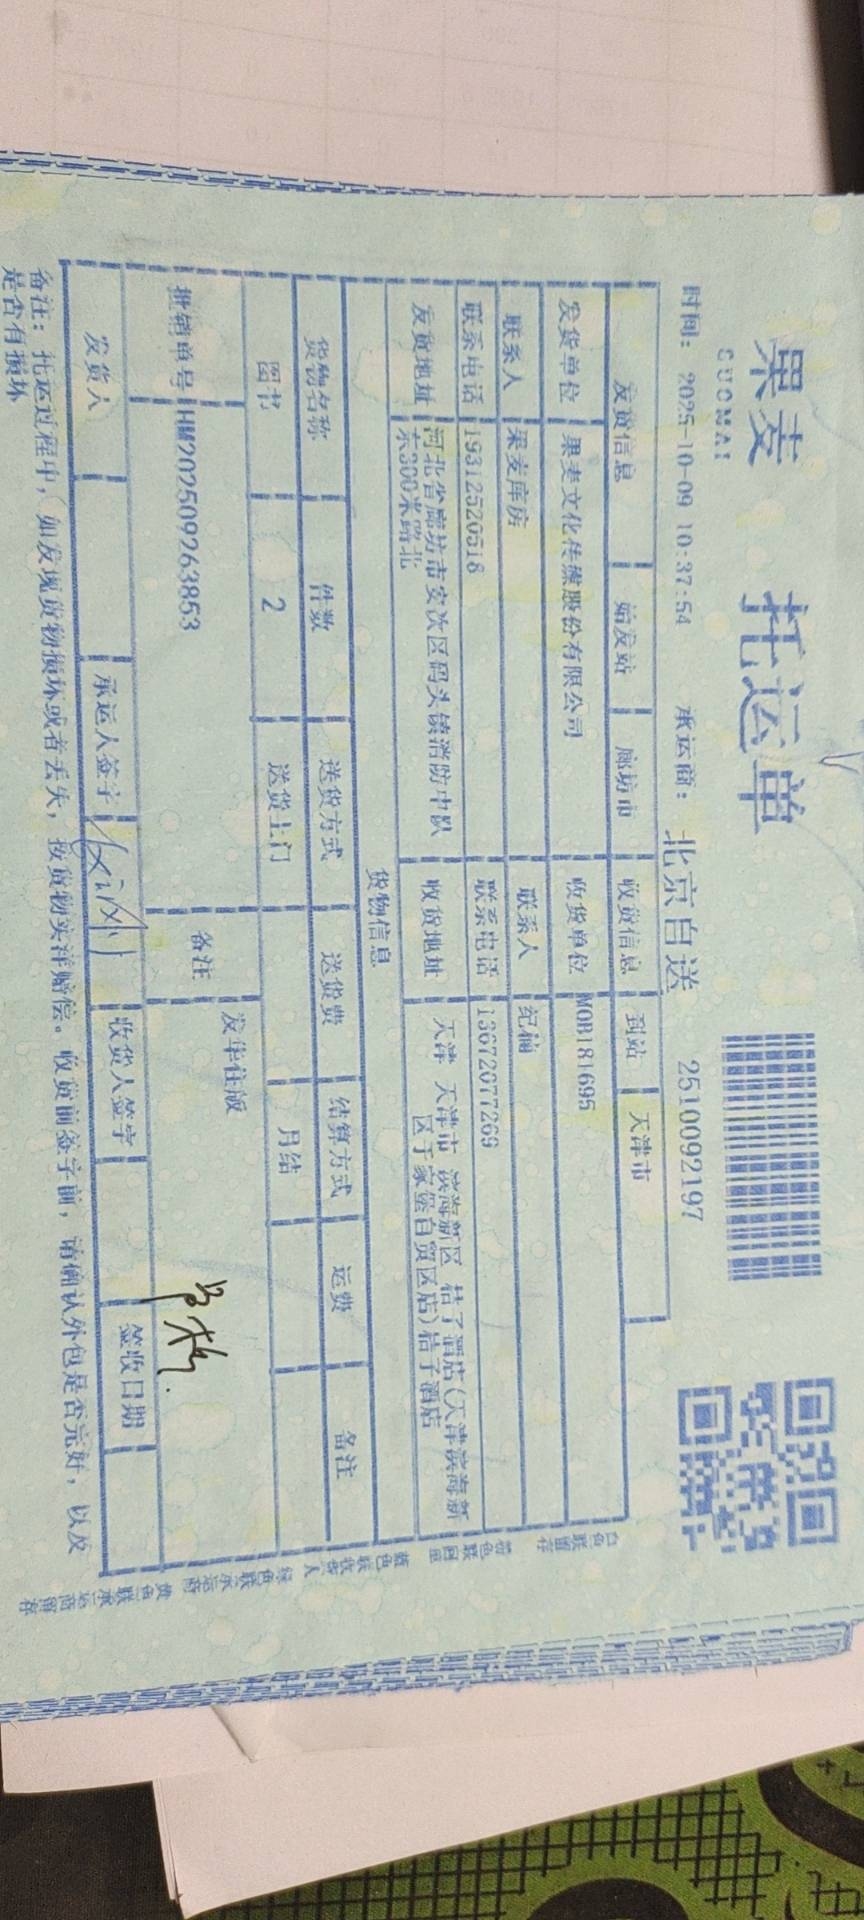 果麦
GUOMAI
托运单
时间： 2025-10-09 10:37:54 承运商： 北京自送 2510092197
发货信息 始发站 廊坊市 收货信息 到站 天津市
发货单位 果麦文化传媒股份有限公司 收货单位 MOB181695
联系人 果麦库房 联系人 纪楠
联系电话 19312520518 联系电话 13672077269
发货地址 河北省廊坊市安次区码头镇消防中队东300米路北 收货地址 天津 天津市 滨海新区 桔子酒店(天津滨海新区于家堡自贸区店)桔子酒店
货物信息
货物名称 件数 送货方式 送货费 结算方式 运费 备注
图书 2 送货上门 月结
批销单号 HM202509263853 备注 发华住版
发货人 承运人签字 收货人签字 签收日期
备注：托运过程中，如发现货物损坏或者丢失，按货物实洋赔偿。收货前签字前，请确认外包是否完好，以及
是否有损坏
白色联留存
蓝色联收货人
绿色联承运商
黄色联承运商留存